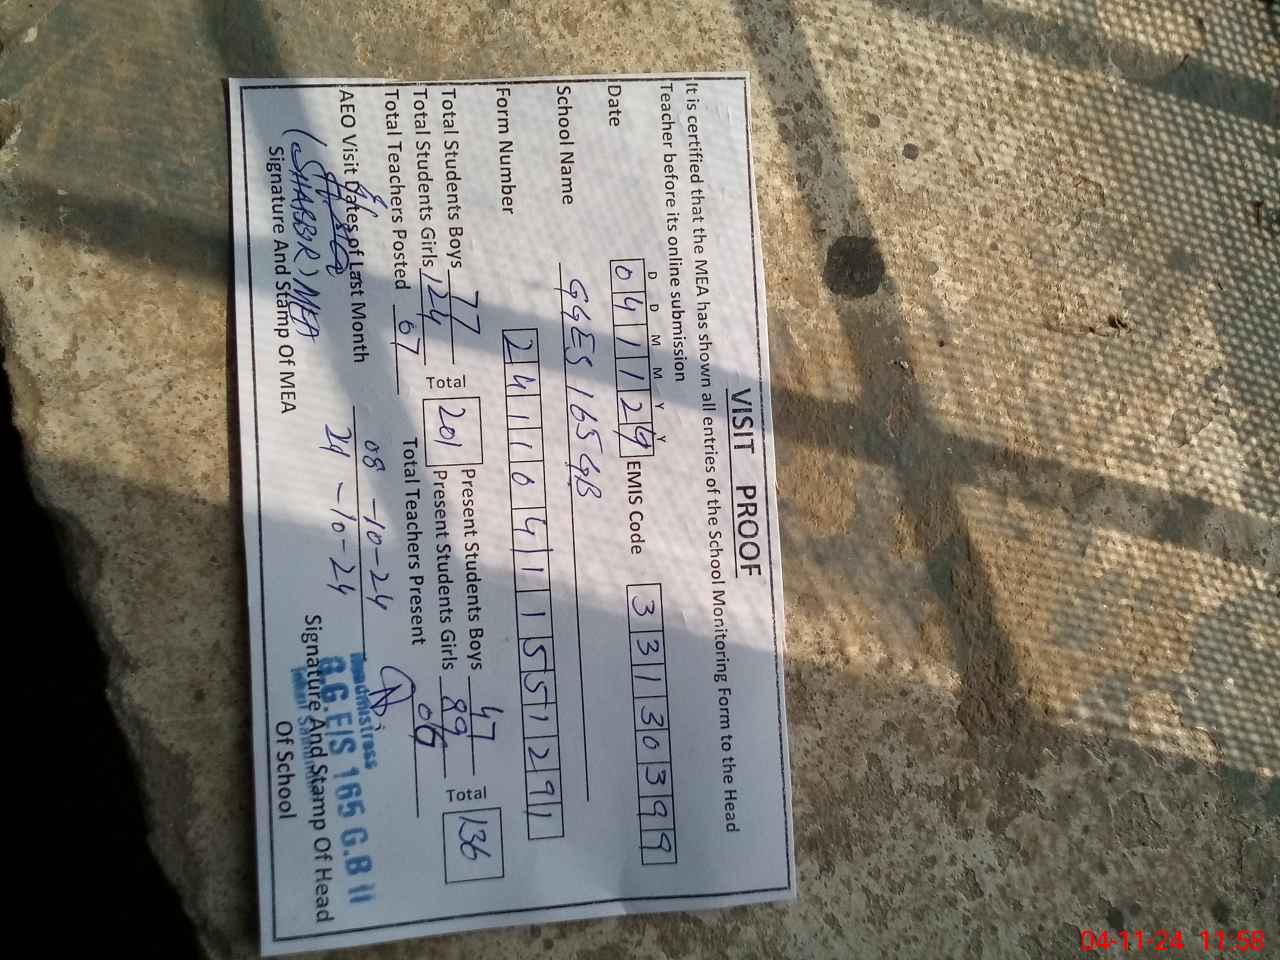 VISIT PROOF
It is certified that the MEA has shown all entries of the School Monitoring Form to the Head
Teacher before its online submission
D D M M Y Y
Date 04 11 24 EMIS Code 33130399
School Name GGES 165 GB
Form Number 24110411551291
Total Students Boys 77 Total 201 Present Students Boys 47 Total 136
Total Students Girls 124 Present Students Girls 89
Total Teachers Posted 07 Total Teachers Present 06
AEO Visit Dates of Last Month 08-10-24
24-10-24
(SHABBIR) MEA
Signature And Stamp Of MEA
Headmistress
G.G.E/S 165 G.B II
Signature And Stamp Of Head
Of School
04-11-24 11:58